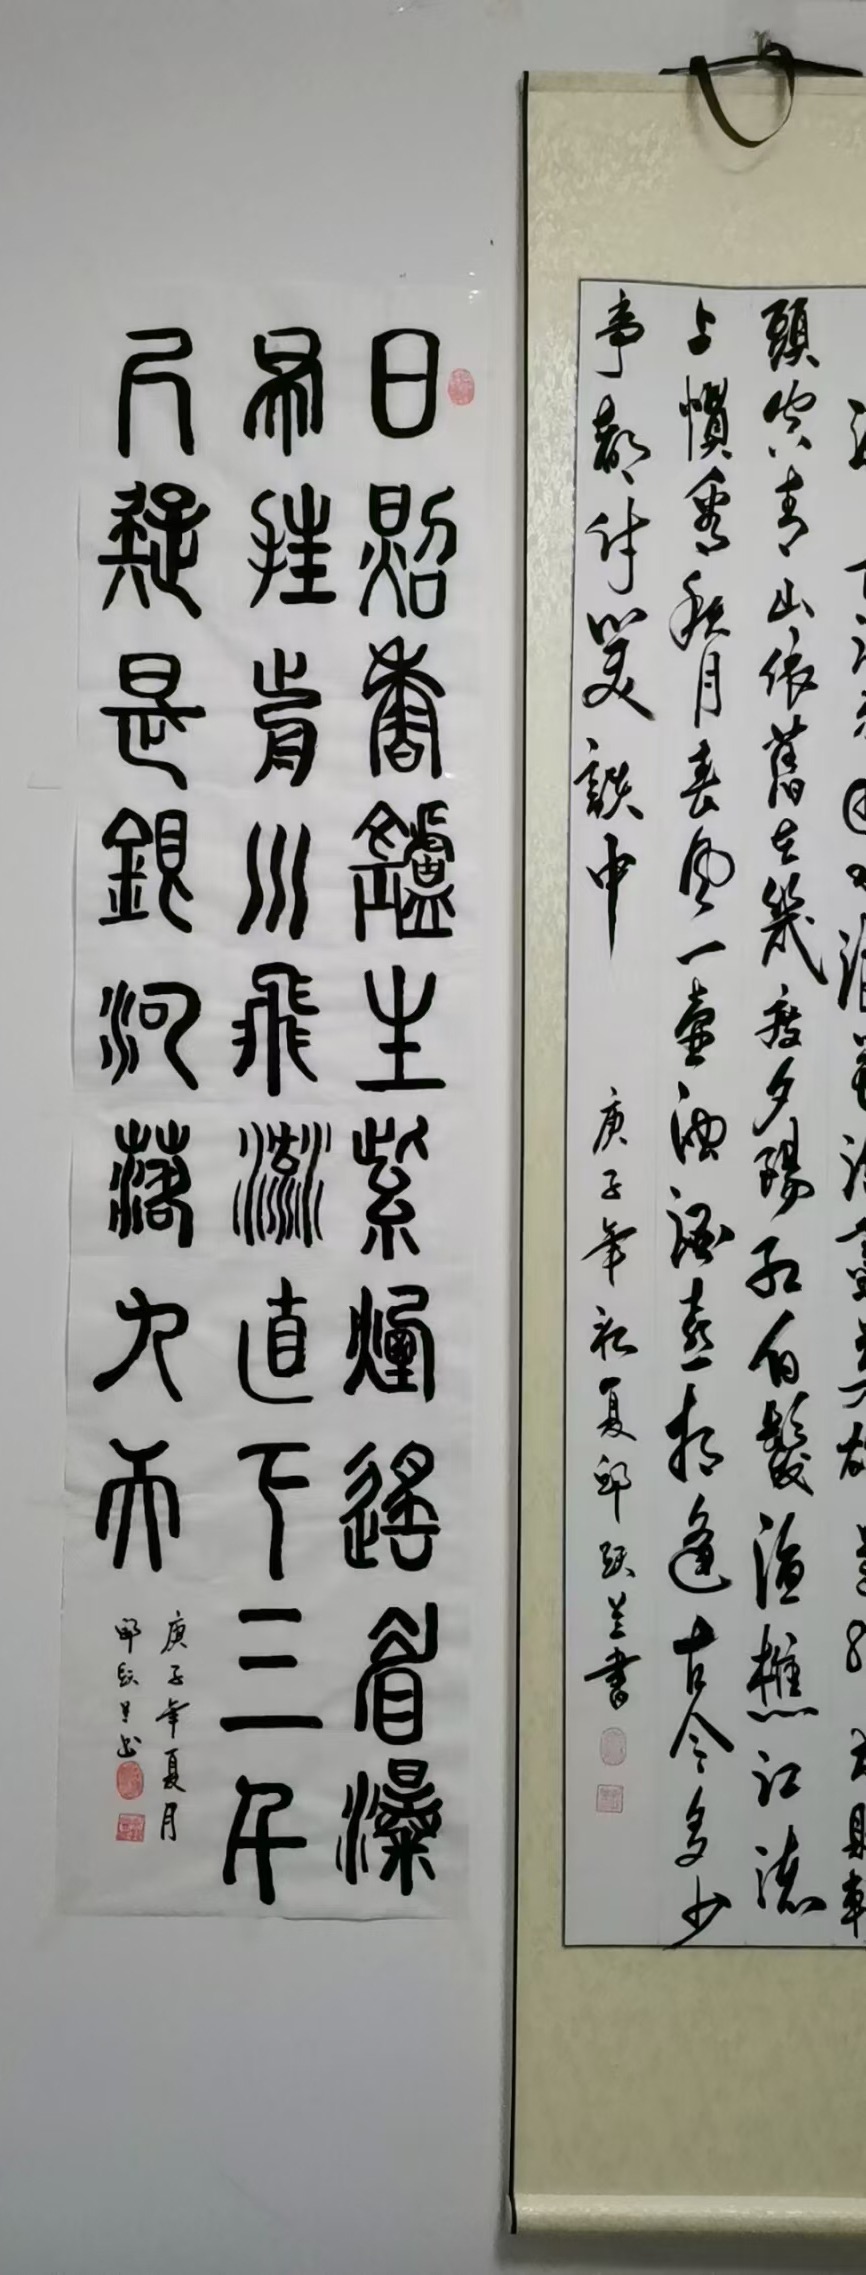 頭空青山依舊在幾度夕陽紅白髮漁樵江渚
上慣看秋月春風一壺濁酒喜相逢古今多少
事都付笑談中
庚子年初夏邱跃兰書
日照香鑪生紫煙遙看瀑
布挂前川飛流直下三千
尺疑是銀河落九天
庚子年夏月
邱跃兰书